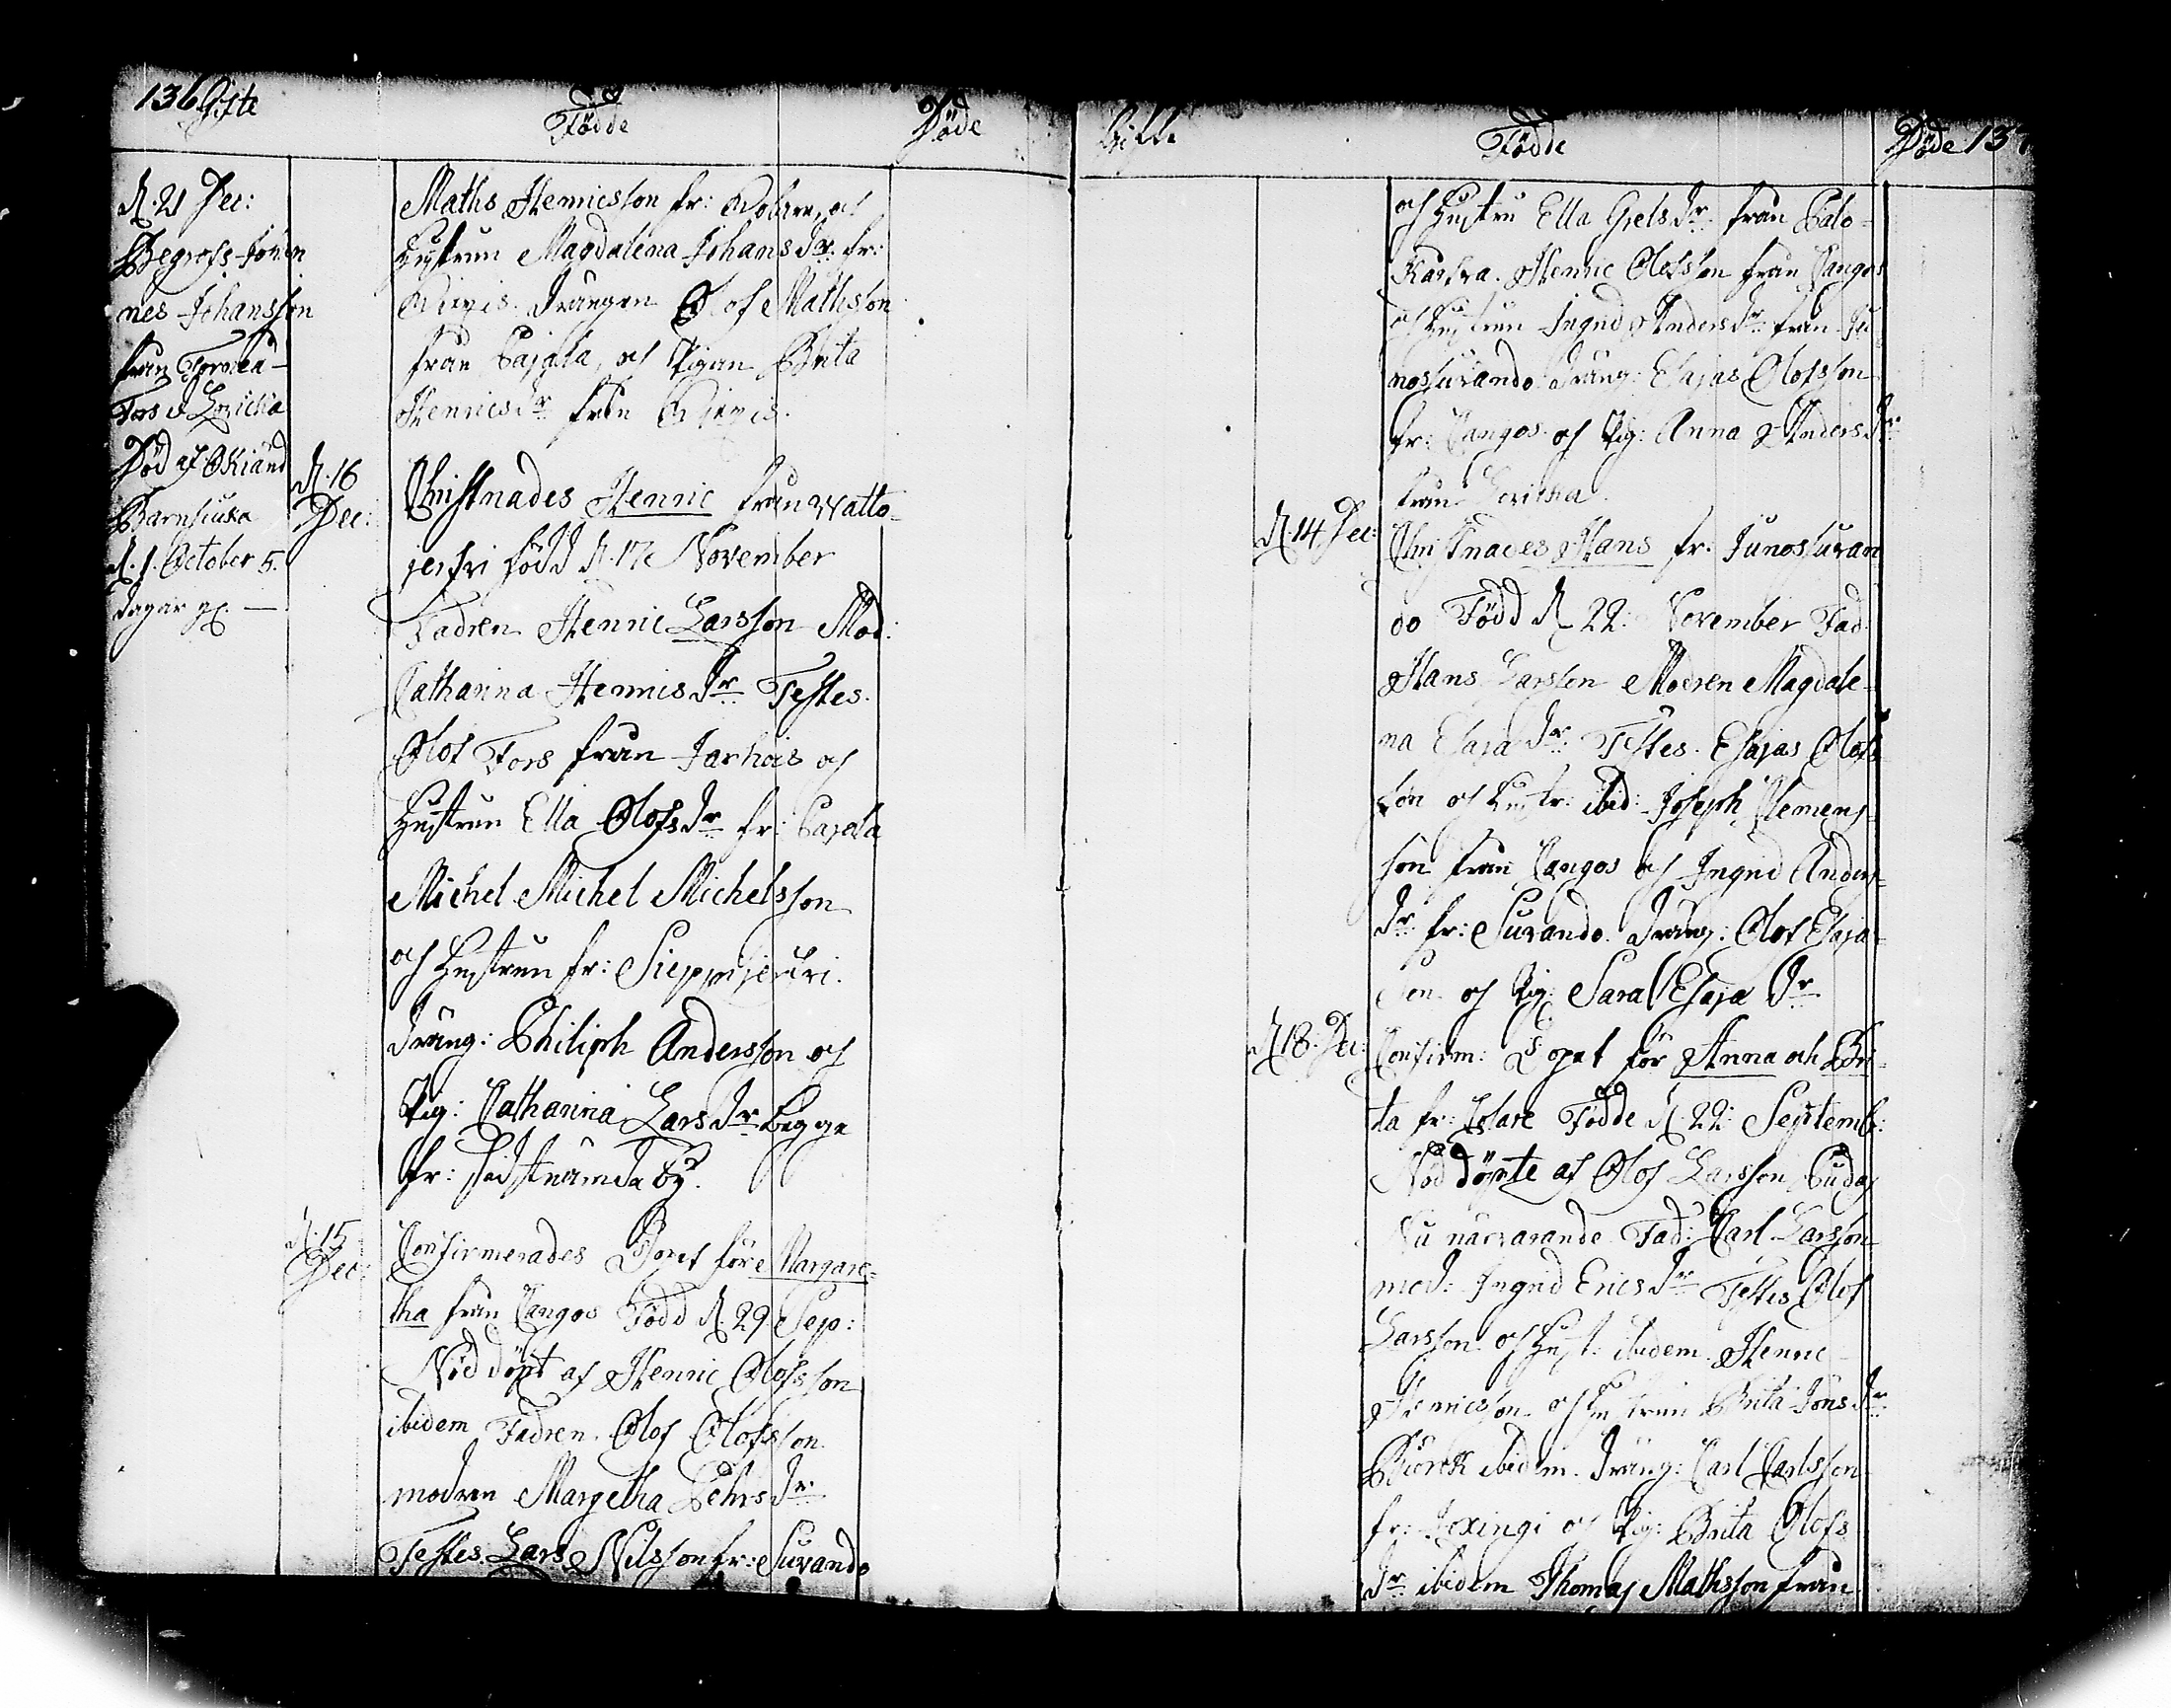 136 Gifte
Födde
Döde
d. 21 Dec:
Begrofs Johan
nes Johansson
från Tornea
Fors d Lovicka
Död af Okiänd
Barnsiuka
d. 1. October 5.
dagar gl. —
Maths Henricsson fr: Kolare, och
Hustrun Magdalena Johans Dr: fr:
Kiexis. Drängen Olof Mathsson
från Pajala, och Pigan Brita
Henrics Dr från Kiexis.
d. 16
Dec:
Christnades Henric från Matto-
jerfvi född d. 17 November
Fadren Henric Larsson Mod:
Catharina Henrics Dr Testes.
Olof Fors från Jarhois och
Hustrun Ella Olofs Dr fr: Pajala
Michel Michel Michelsson
och Hustrun fr: Sieppijerfvi.
Dräng: Philiph Andersson och
Pig: Catharina Lars Dr begge
fr: sidstnämda by.
d. 15
Dec:
Confirmerades Dopet för Margare-
tha från Kangos Född d. 29 Sep:
Nöd döpt af Henric Olofsson
ibidem Fadren Olof Olofsson
modren Margetha Pehrs Dr
Testes. Lars Nilsson fr: Suvando
Gifte
Födde
Döde 137
och Hustru Ella Grels Dr från Palo-
Kårfva. Henric Olofsson från Kangos
och Hustrun Ingrid Anders Dr från Ju
nossuvando Dräng: Esajas Olofsson
fr: Kangos och Pig: Anna Anders Dr
från Lovicka.
d. 14 Dec:
Christnades Hans fr: Junossuvan
do Född d 22: November Fad:
Hans Larsson Modren Magdale-
na Esaja Dr Testes. Esajas Olofs
son och Hustr: ibid: Joseph Clemens-
son från Kangos och Ingrid Anders-
Dr fr: Suvando. Dräng: Olof Esaja-
son och Pig: Sara Esaja Dr
d 18: Dec:
Confirm: Dopet för Anna och Bri-
ta fr: Kolare Födde d. 22: Septemb:
Nöd döpte af Olof Larsson Pudas
Nu närvarande Fad: Carl Larsson
mod: Ingrid Erics Dr Testes Olof
Larsson och Hust: ibidem. Henric
Henricsson och Hustrun Brita Jöns Dr
Biörck ibidem. Dräng: Carl Carlsson
fr: Jexingi och Pig: Brita Olofs
Dr ibidem Thomas Mathsson från